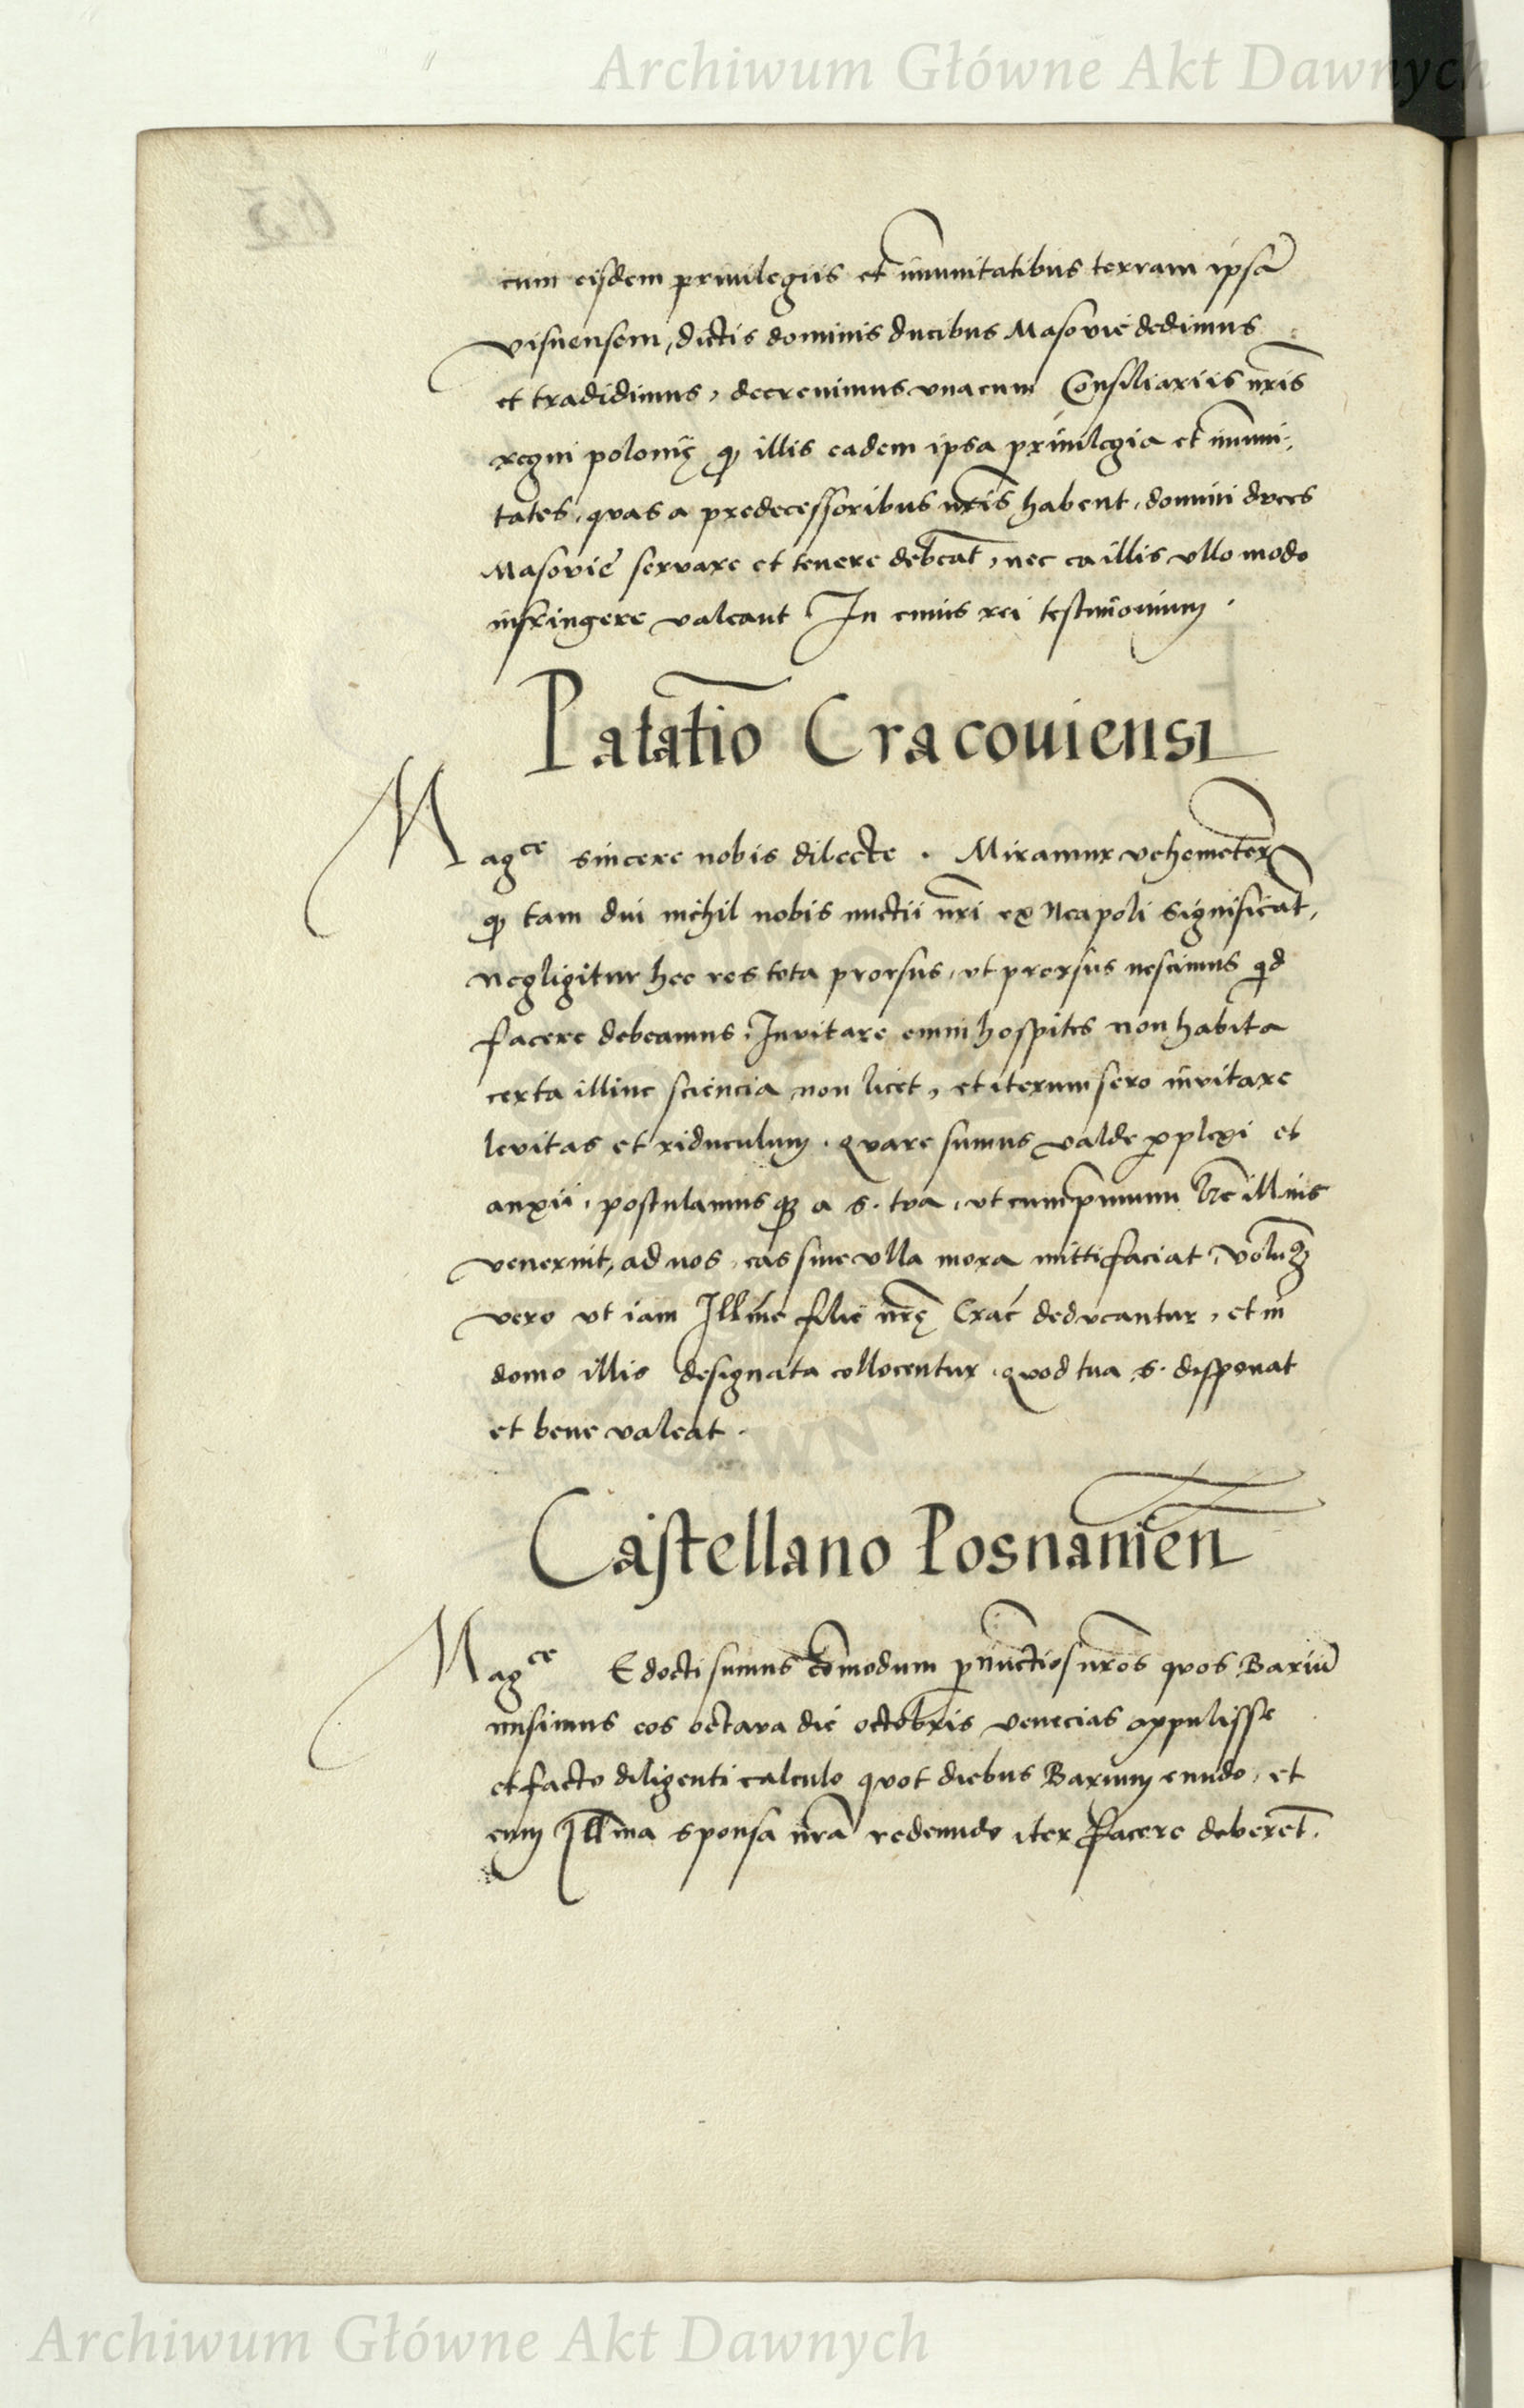 Archiwum Główne Akt Dawnych
cum eisdem privilegiis et im̃unitatibus terram ipsã
visnensem, dictis dominis ducibus Masovie dedimus
et tradidimus, decrevimus vnacum Consiliariis nr̃is
regni polonię ꝙ illis eadem ipsa privilegia et im̃uni,
tates, quas a predecessoribus nr̃is habent, domini duces
Masovie servare et tenere debeãt, nec ea illis ullo modo
infringere valeant In cuius rei testimonium.
Palatĩo Cracoviensi
Mag^ce sincere nobis dilecte. Miramur vehemẽter
ꝙ tam diu nichil nobis nuctii nr̃i ex Neapoli significãt,
negligitur hec res tota prorsus, vt prorsus nescimus qd
facere debeamus. Invitare enim hospites non habita
certa illinc sciencia non licet, et iterum sero invitare
levitas et ridiculum. quare sumus valde ꝑplexi et
anxii, postulamusqꝫ a s. tva, vt cumpmum lr̃e illinc
venerint, ad nos, eas sine ulla mora mitti faciat, volumꝰ
vero vt iam Illme filie nr̃ę Crac̃ deducantur, et in
domo illis designata collocentur, quod tua s. disponat
et bene valeat.
Castellano Posnanieñ
Mag^ce Edocti sumus com̃odum ꝑ nũctios nr̃os quos Bariũ
misimus eos octava die octobris venecias appulisse
et facto diligenti calculo quot diebus Barium eundo, et
cum Illma sponsa nr̃a redeundo iter facere deberẽt.
Archiwum Główne Akt Dawnych